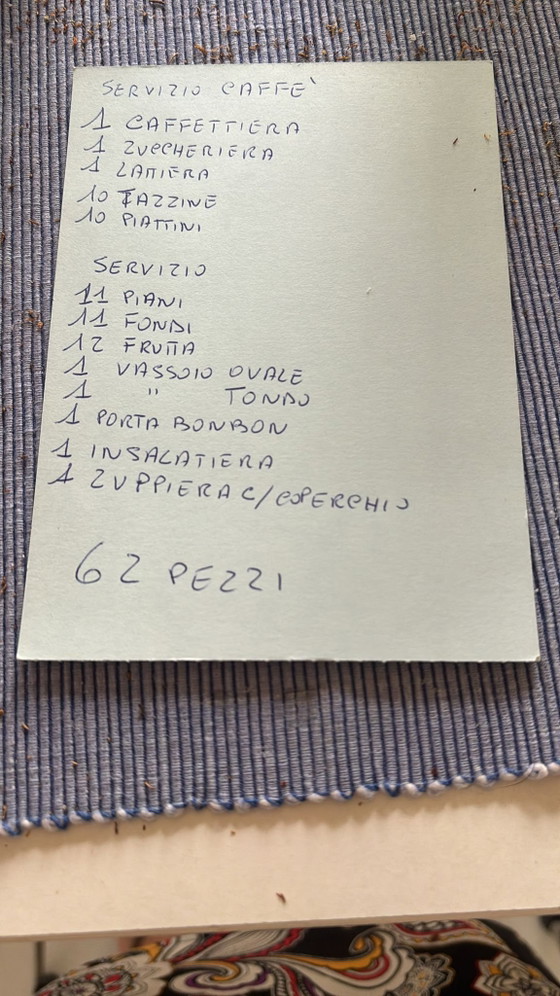 SERVIZIO CAFFE`
1 CAFFETTIERA
1 ZUCCHERIERA
1 LATTIERA
10 TAZZINE
10 PIATTINI
SERVIZIO
11 PIANI
11 FONDI
12 FRUTTA
1 VASSOIO OVALE
1 " TONDO
1 PORTA BONBON
1 INSALATIERA
1 ZUPPIERA C/COPERCHIO
62 PEZZI